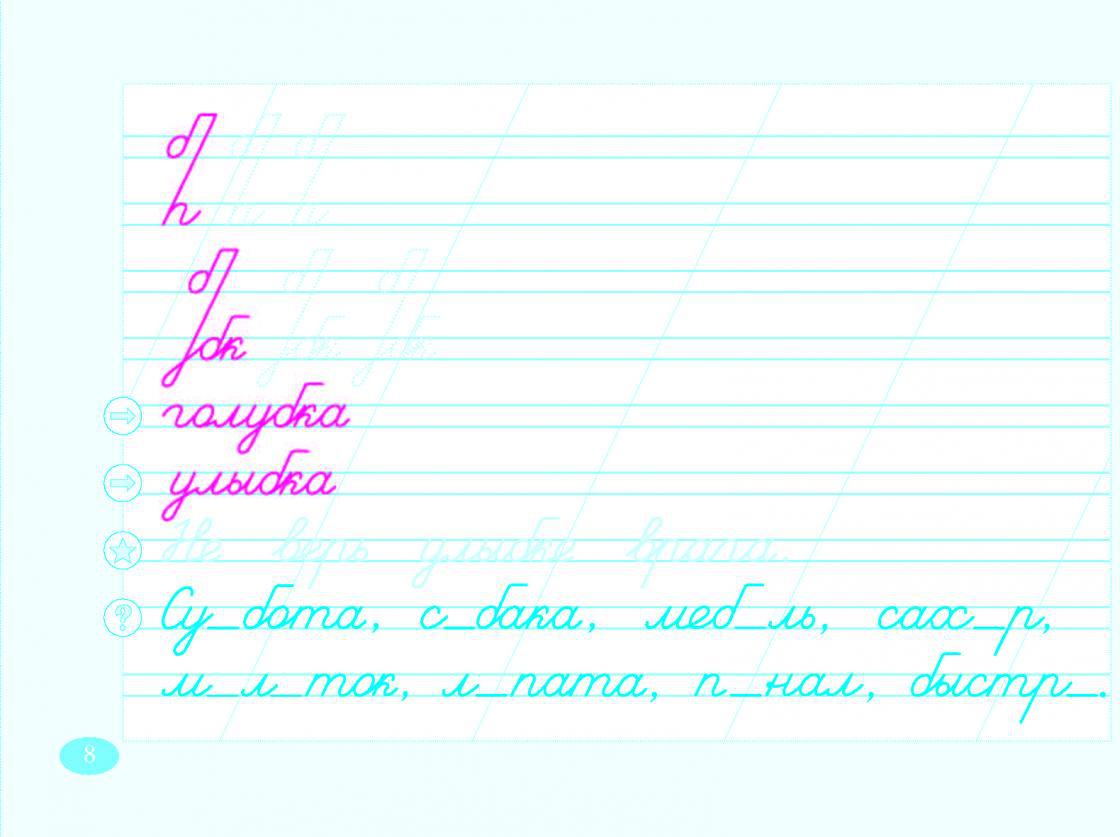 бк
голубка
улыбка
Не верь улыбке врага.
Су_бота, с_бака, меб_ль, сах_р,
м_л_ток, л_пата, п_нал, быстр_.
8